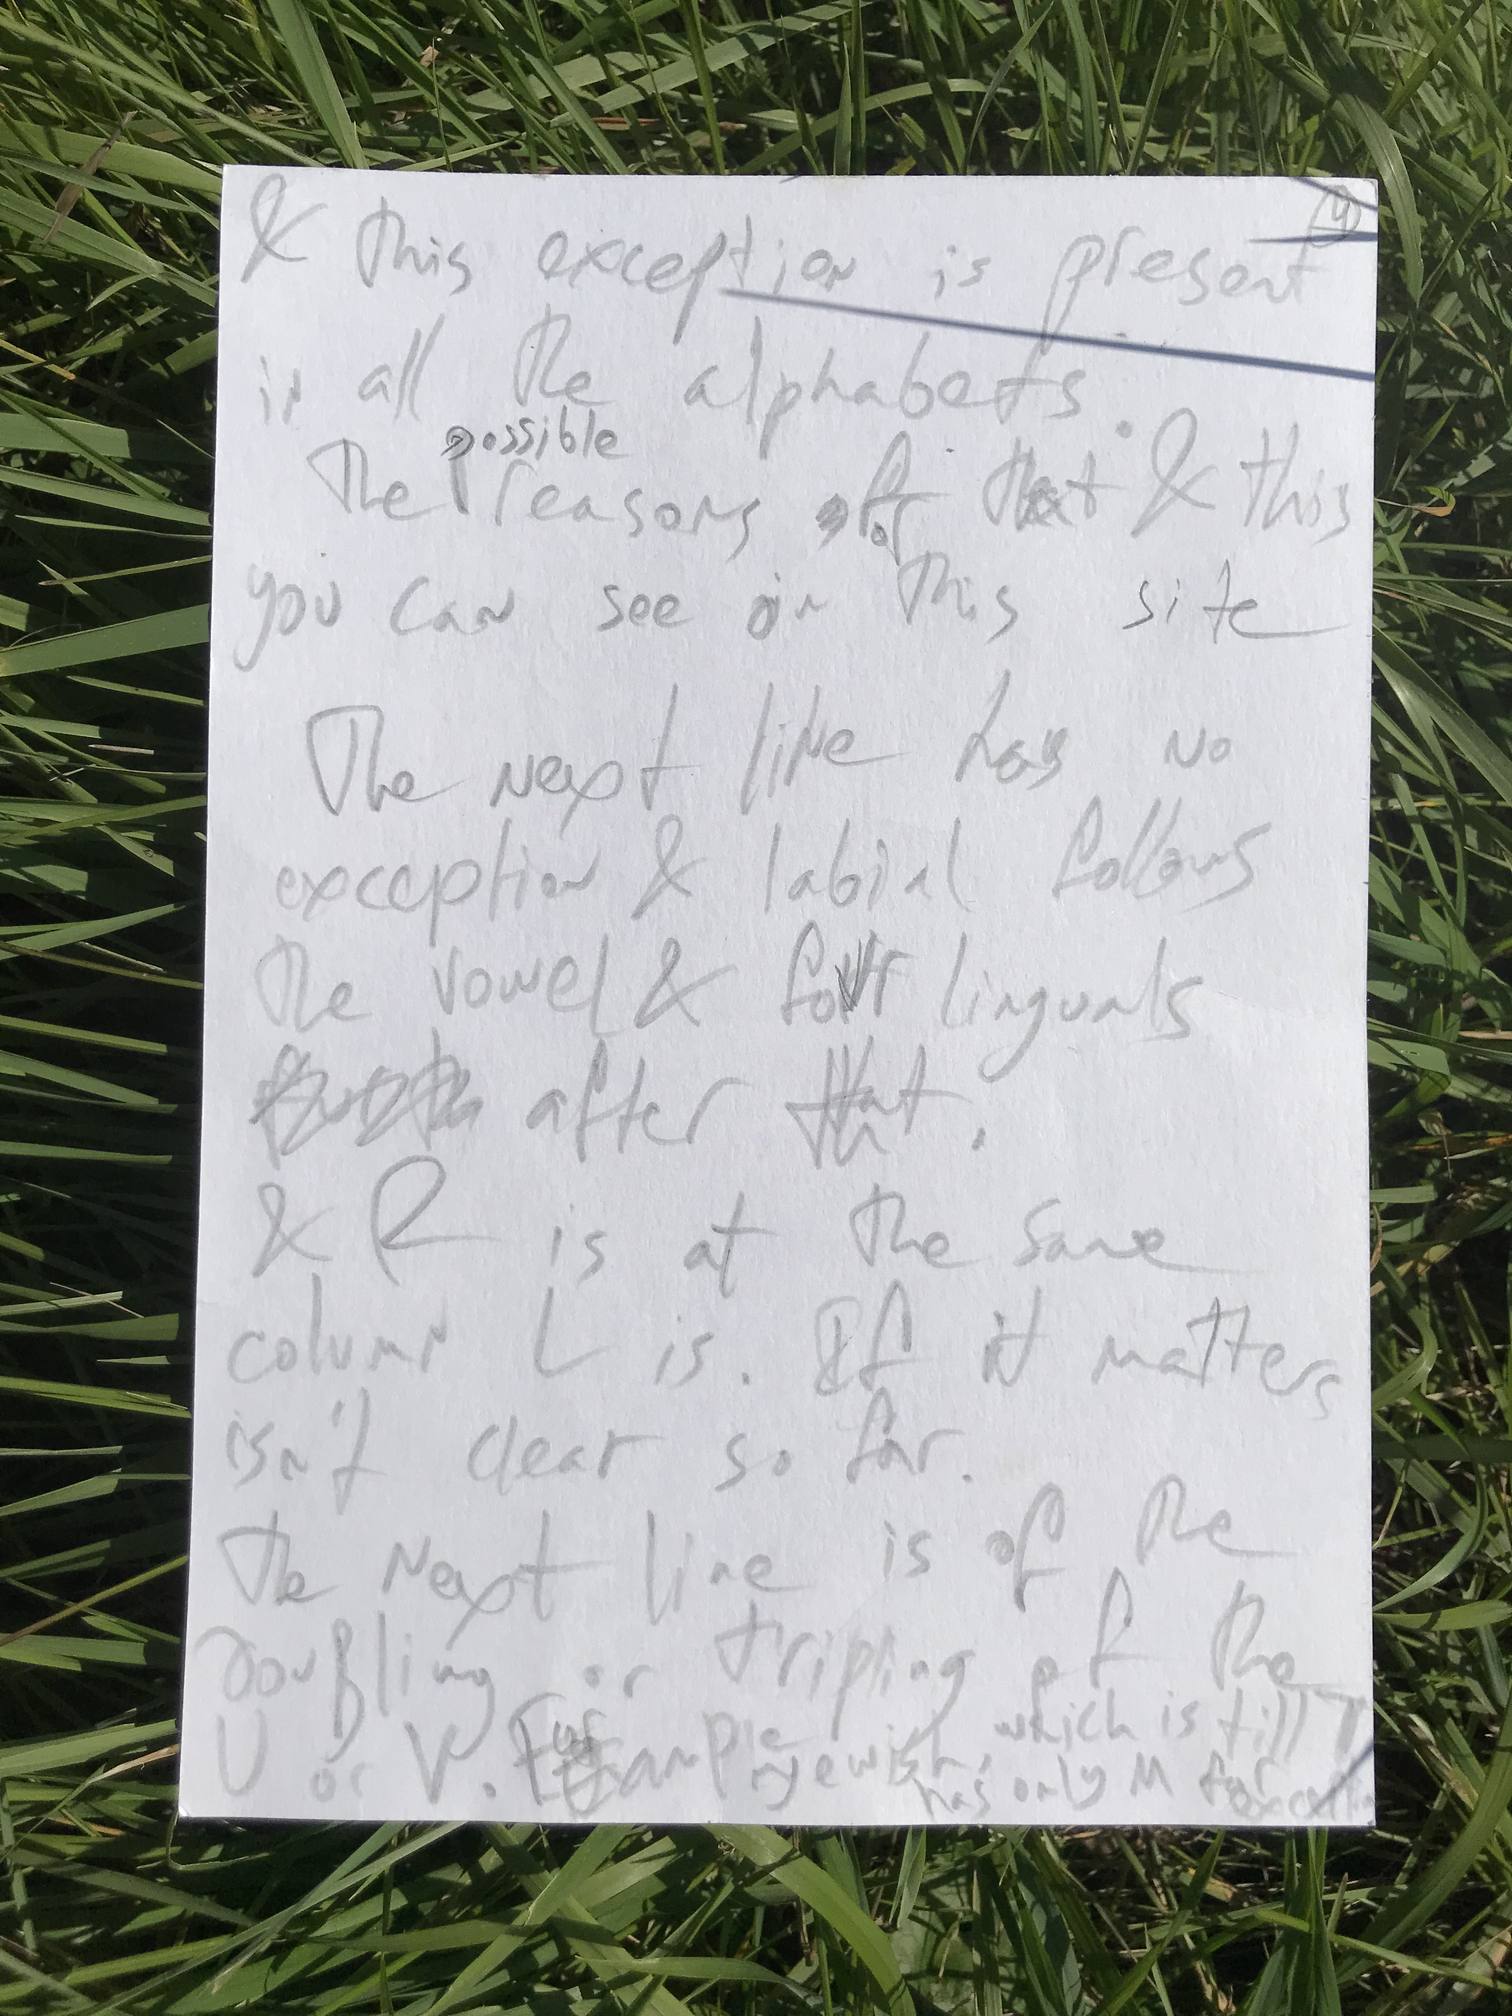 4
& this exception is present
in all the alphabets.
possible
The reasons for that & this
you can see on this site
The next line has no
exception & labial follows
the vowel & four linguals
after that.
& R is at the same
column L is. If it matters
isn't clear so far.
The next line is of the
doubling or tripling of the
U or V. For example
jewish, which is till T
has only M for